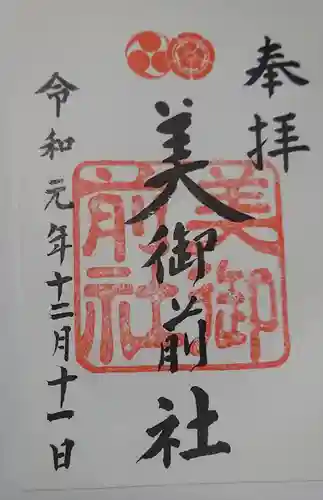 奉拝
美御前社
令和元年十二月十一日
美御前社